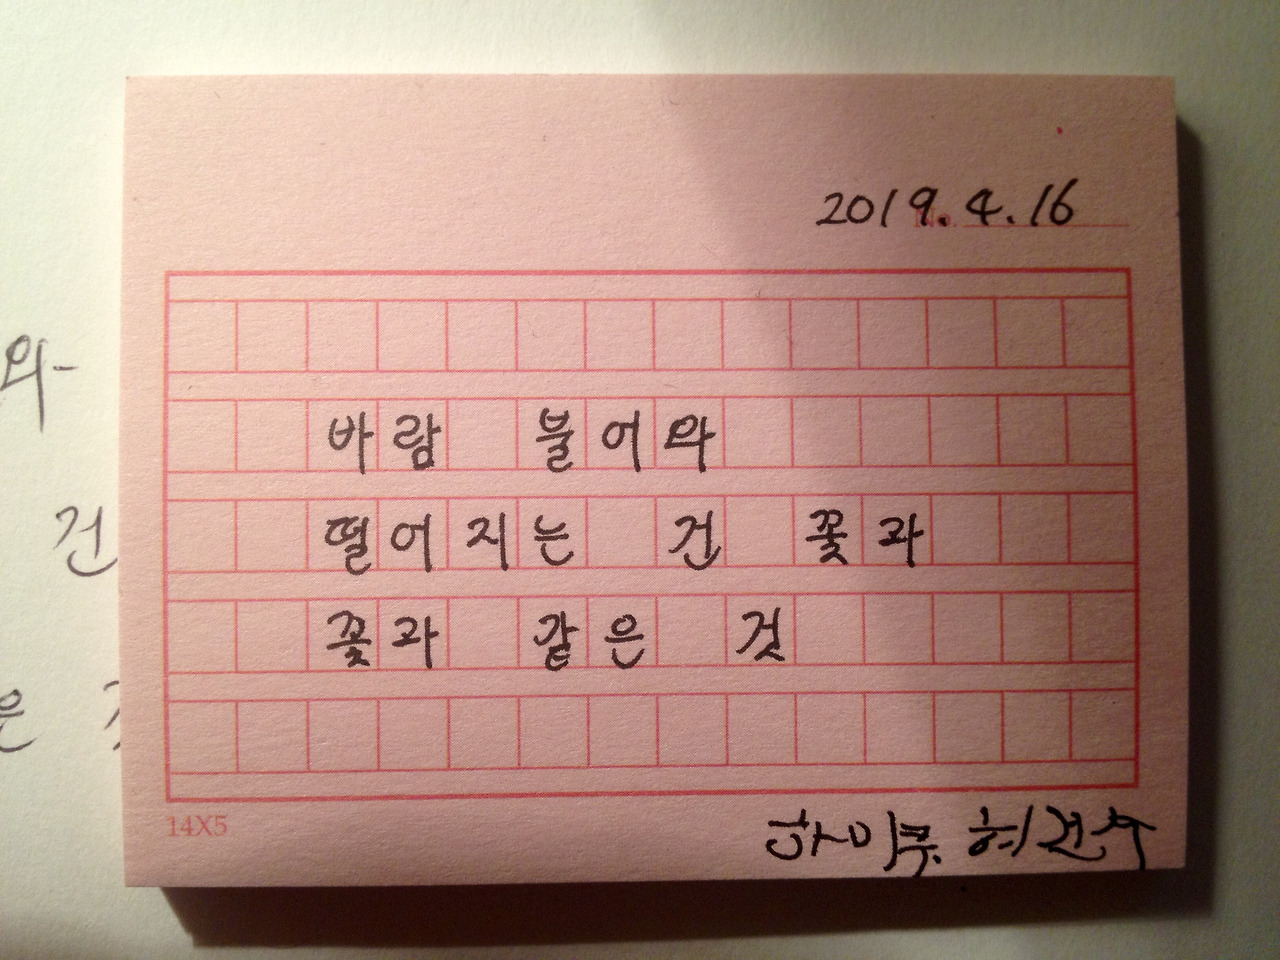 2019.4.16
No.
바람 불어와
떨어지는 건 꽃과
꽃과 같은 것
14X5
하이쿠
와
건
은